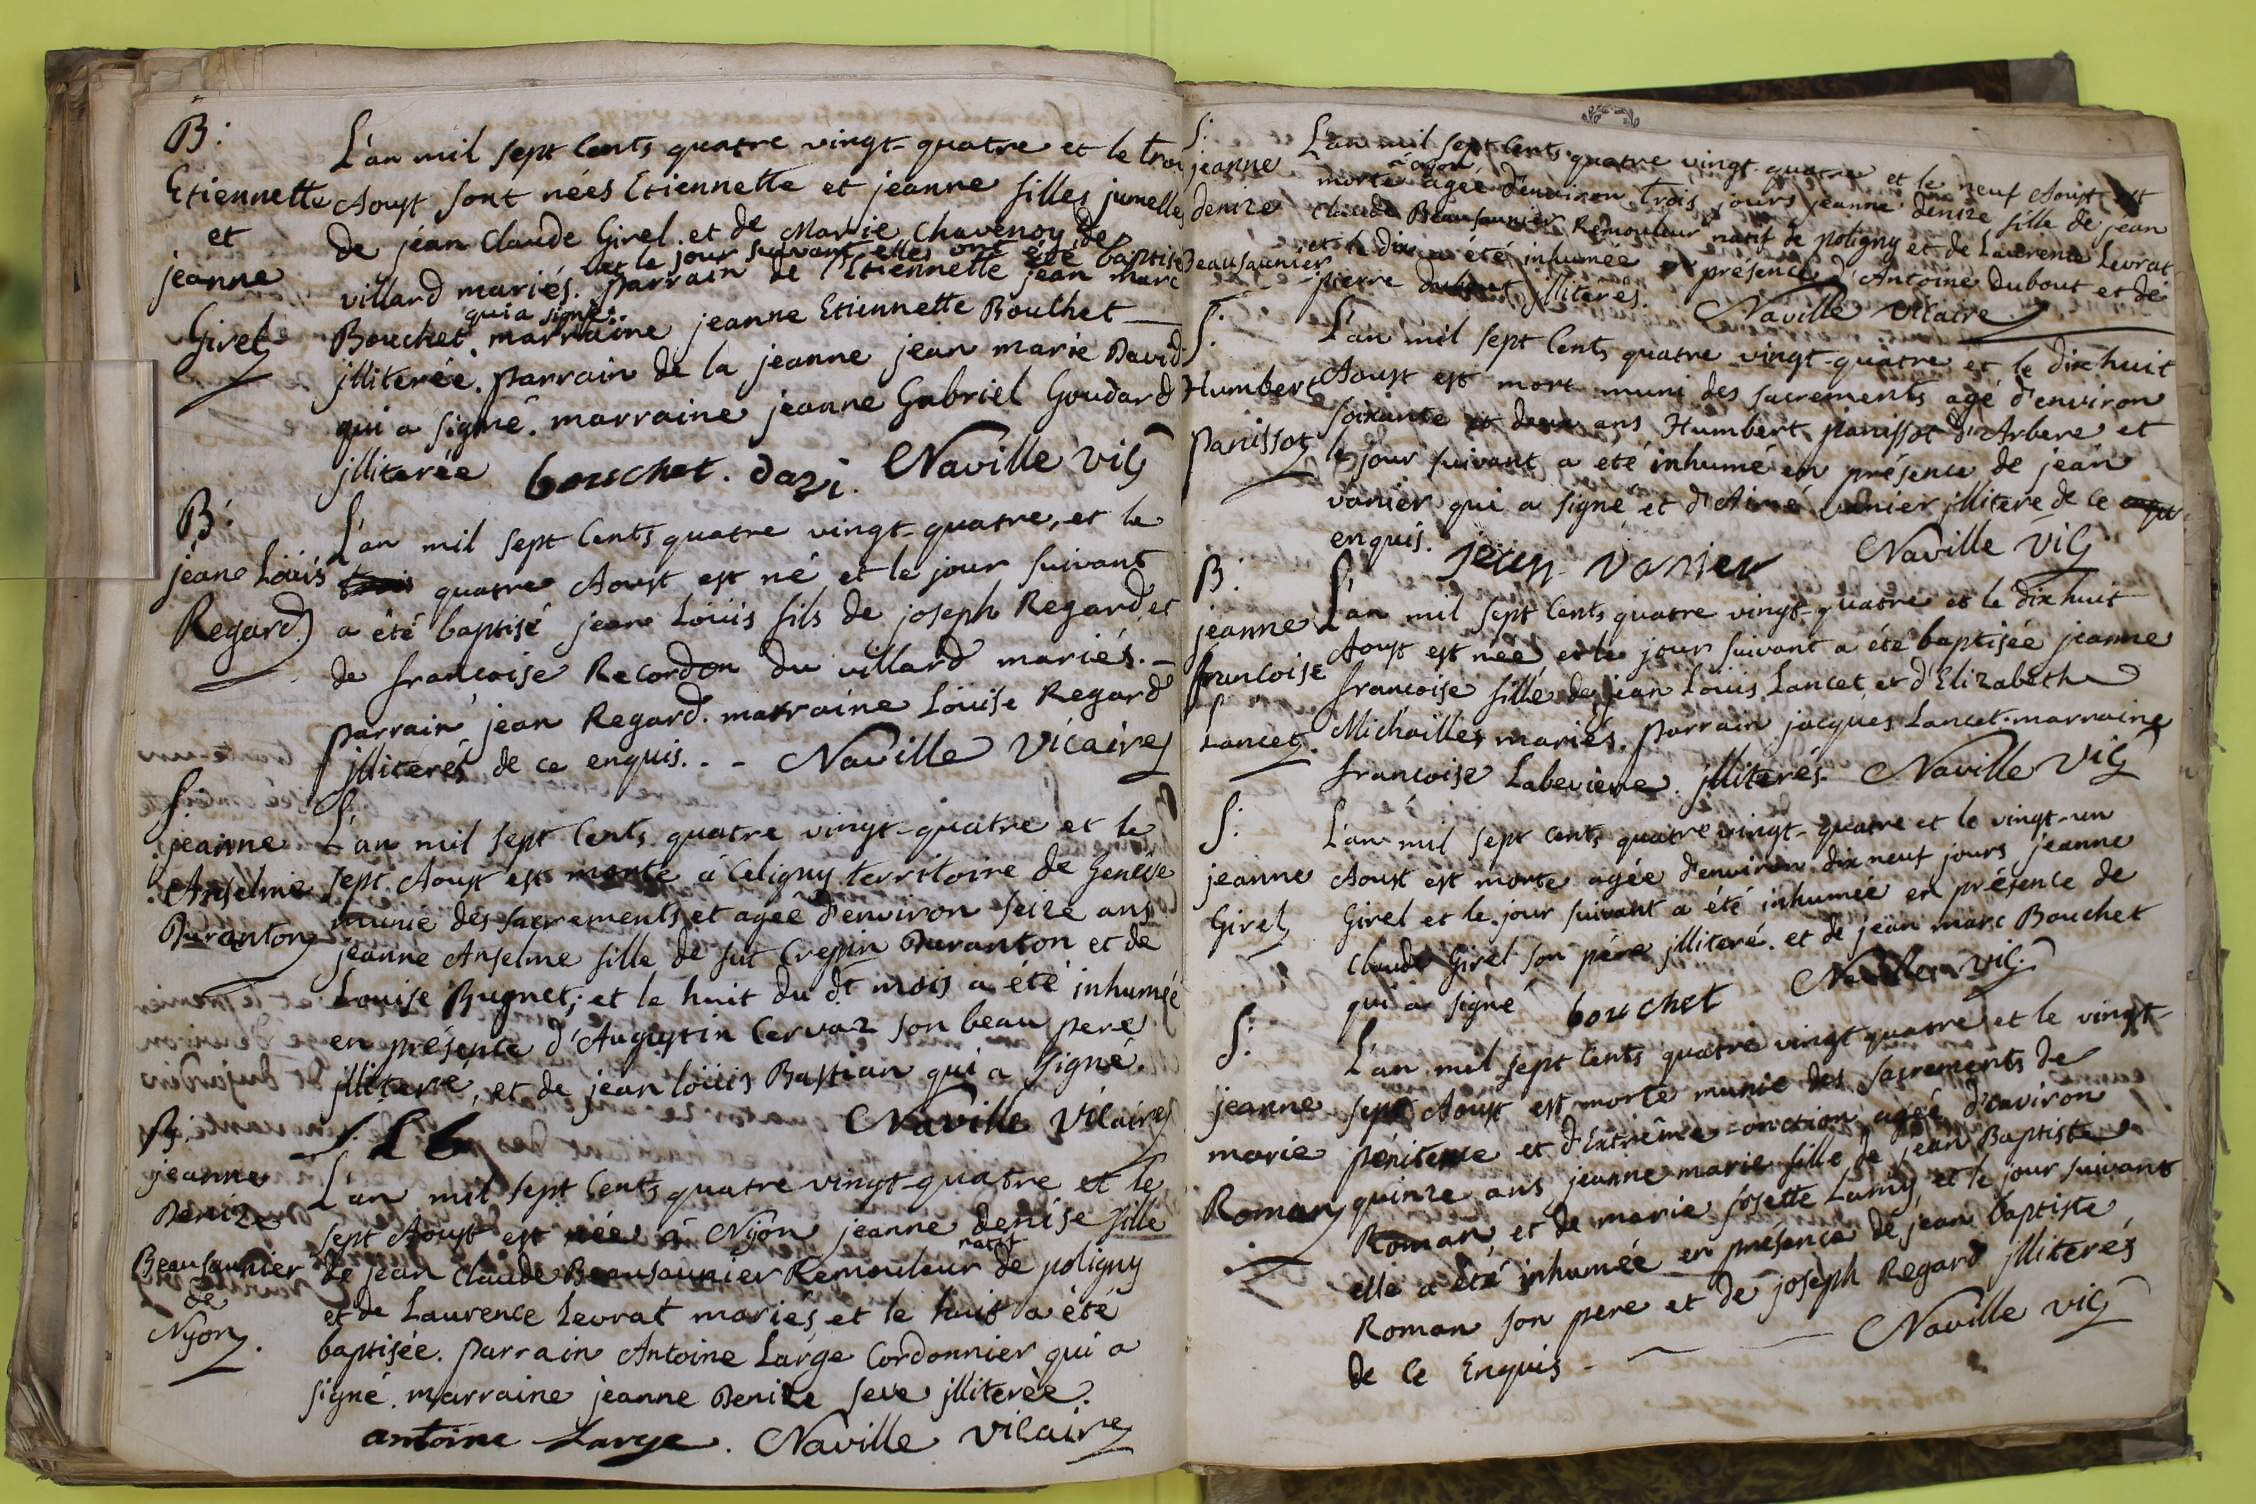 B:
Etiennette
et
jeanne
Girel
L'an mil sept Cents quatre vingt-quatre et le trois
Aoust sont nées Etiennette et jeanne filles jumelles
de jéan Claude Girel et de Marie Chavenoy de
et le jour suivant elles ont été baptisé
villard mariés. parrain de l'Etiennette jean marc
qui a signé.
Bouchet marraine jeanne Etiennette Boulhet
jlliterée. parrain de la jeanne jean marie David
qui a signé. marraine jeanne Gabriel Goudard
jlliterée bouschet. davi. Naville vic
B:
jean Loüis
Regard
L'an mil sept Cents quatre vingt-quatre, et le
quatre Aoust est né et le jour suivant
a été baptisé jean Loüis fils de joseph Regard, et
de francoise Recordon du villard mariés. —
parrain jean Regard. marraine Loüise Regard
jlliterés de ce enquis. . - Naville vicaire
S:
jeanne
Anselme
Duranton
L'an mil sept Cents quatre vingt-quatre et le
sept Aoust est morte à Celigny territoire de Genève
munie des sacrements et agée d'environ seize ans
jeanne Anselme fille de fut Crespin Duranton et de
Louise Bugnet; et le huit du dt mois a été inhumée
en présence d'Augustin Cervaz son beau pere
jlliteré, et de jean loüis Bastian qui a signé.
J. L b Naville vicaire
B:
jeanne
Denize
Beausaunier
de
Nyon
L'an mil sept Cents quatre vingt-quatre et le
sept Aoust est née à Nyon jeanne denise fille
natif
de jean Claude Beausaunier Remouleur de poligny
et de Laurence Levrat mariés et le huit a été
baptisée. parrain Antoine Large Cordonnier qui a
signé. marraine jeanne Denize seve jlliterée.
antoine Large. Naville vicaire
S:
jeanne
denize
Beausaunier
L'an mil sept Cents quatre vingt-quatre et le neuf Aoust est
à nyon
morte agée d'environ trois jours jeanne denize fille de jéan
Claude Beausaunier Remouleur natif de poligny et de Laurence Levrat
et le dix a été inhumée en présence d'Antoine Dubout et de
pierre dubout jlliterés. Naville vicaire
S:
Humbert
panissot
L'an mil sept Cents quatre vingt-quatre et le dixhuit
Aoust est mort muni des sacrements agé d'environ
soixante et deux ans Humbert panissot d'Arbere et
le jour suivant a été inhumé en présence de jean
vanier qui a signé et d'Aimé vanier jllitere de ce
enquis. jean vanier Naville vic
B:
jeanne
francoise
Lancet
L'an mil sept Cents quatre vingt-quatre et le dixhuit
Aoust est née et le jour suivant a été baptisée jeanne
francoise fille de jean Loüis Lancet et d'Elizabeth
Michailles mariés. parrain jacques Lancet. marraine
francoise Labeviere. jlliterés. Naville vic
S:
jeanne
Girel
L'an mil sept cents quatre vingt-quatre et le vingt-un
Aoust est morte agée d'environ dix neuf jours jeanne
Girel et le jour suivant a été inhumée en présence de
Claude Girel son pére jlliteré. et de jean marc Bouchet
qui a signé bouschet Naville vic.
S:
jeanne
marie
Roman
L'an mil sept Cents quatre vingt quatre et le vingt-
sept Aoust est morte munie des sacrements de
pénitence et d'Extrême-onction agée d'environ
quinze ans jeanne marie fille de jean Baptiste
Roman et de marie josette Lamy, et le jour suivant
elle a été inhumée en présence de jean baptiste
Roman son pere et de joseph Regard jlliterés
de Ce Enquis - Naville vic